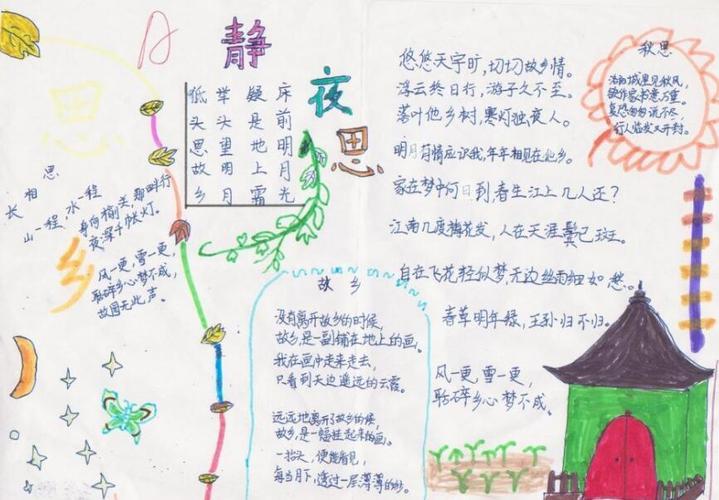 A
静
夜
思
床前明月光
疑是地上霜
举头望明月
低头思故乡
思
乡
长相思
山一程，水程
身向榆关那畔行
夜深千帐灯。
风一更，雪一更，
聒碎乡心梦不成，
故园无此声。
故 乡
没有离开故乡的时候，
故乡是一副铺在地上的画。
我在画中走来走去，
只看到天边遥远的云霞。
远远地离开了故乡的候，
故乡，是一幅挂起来的画。
一抬头，便能看见，
每当月下，透过一层薄薄的纱。
悠悠天宇旷，切切故乡情。
浮云终日行，游子久不至。
落叶他乡树，寒灯独夜人。
明月有情应识我，年年相见在他乡。
家在梦中何日到 春生江上几人还？
江南几度梅花发，人在天涯鬓已斑。
自在飞花轻似梦，无边丝雨细如愁。
春草明年绿，王孙归不归。
风一更，雪一更，
聒碎乡心梦不成。
秋思
洛阳城里见秋风，
欲作家书意万重。
复恐匆匆说不尽，
行人临发又开封。